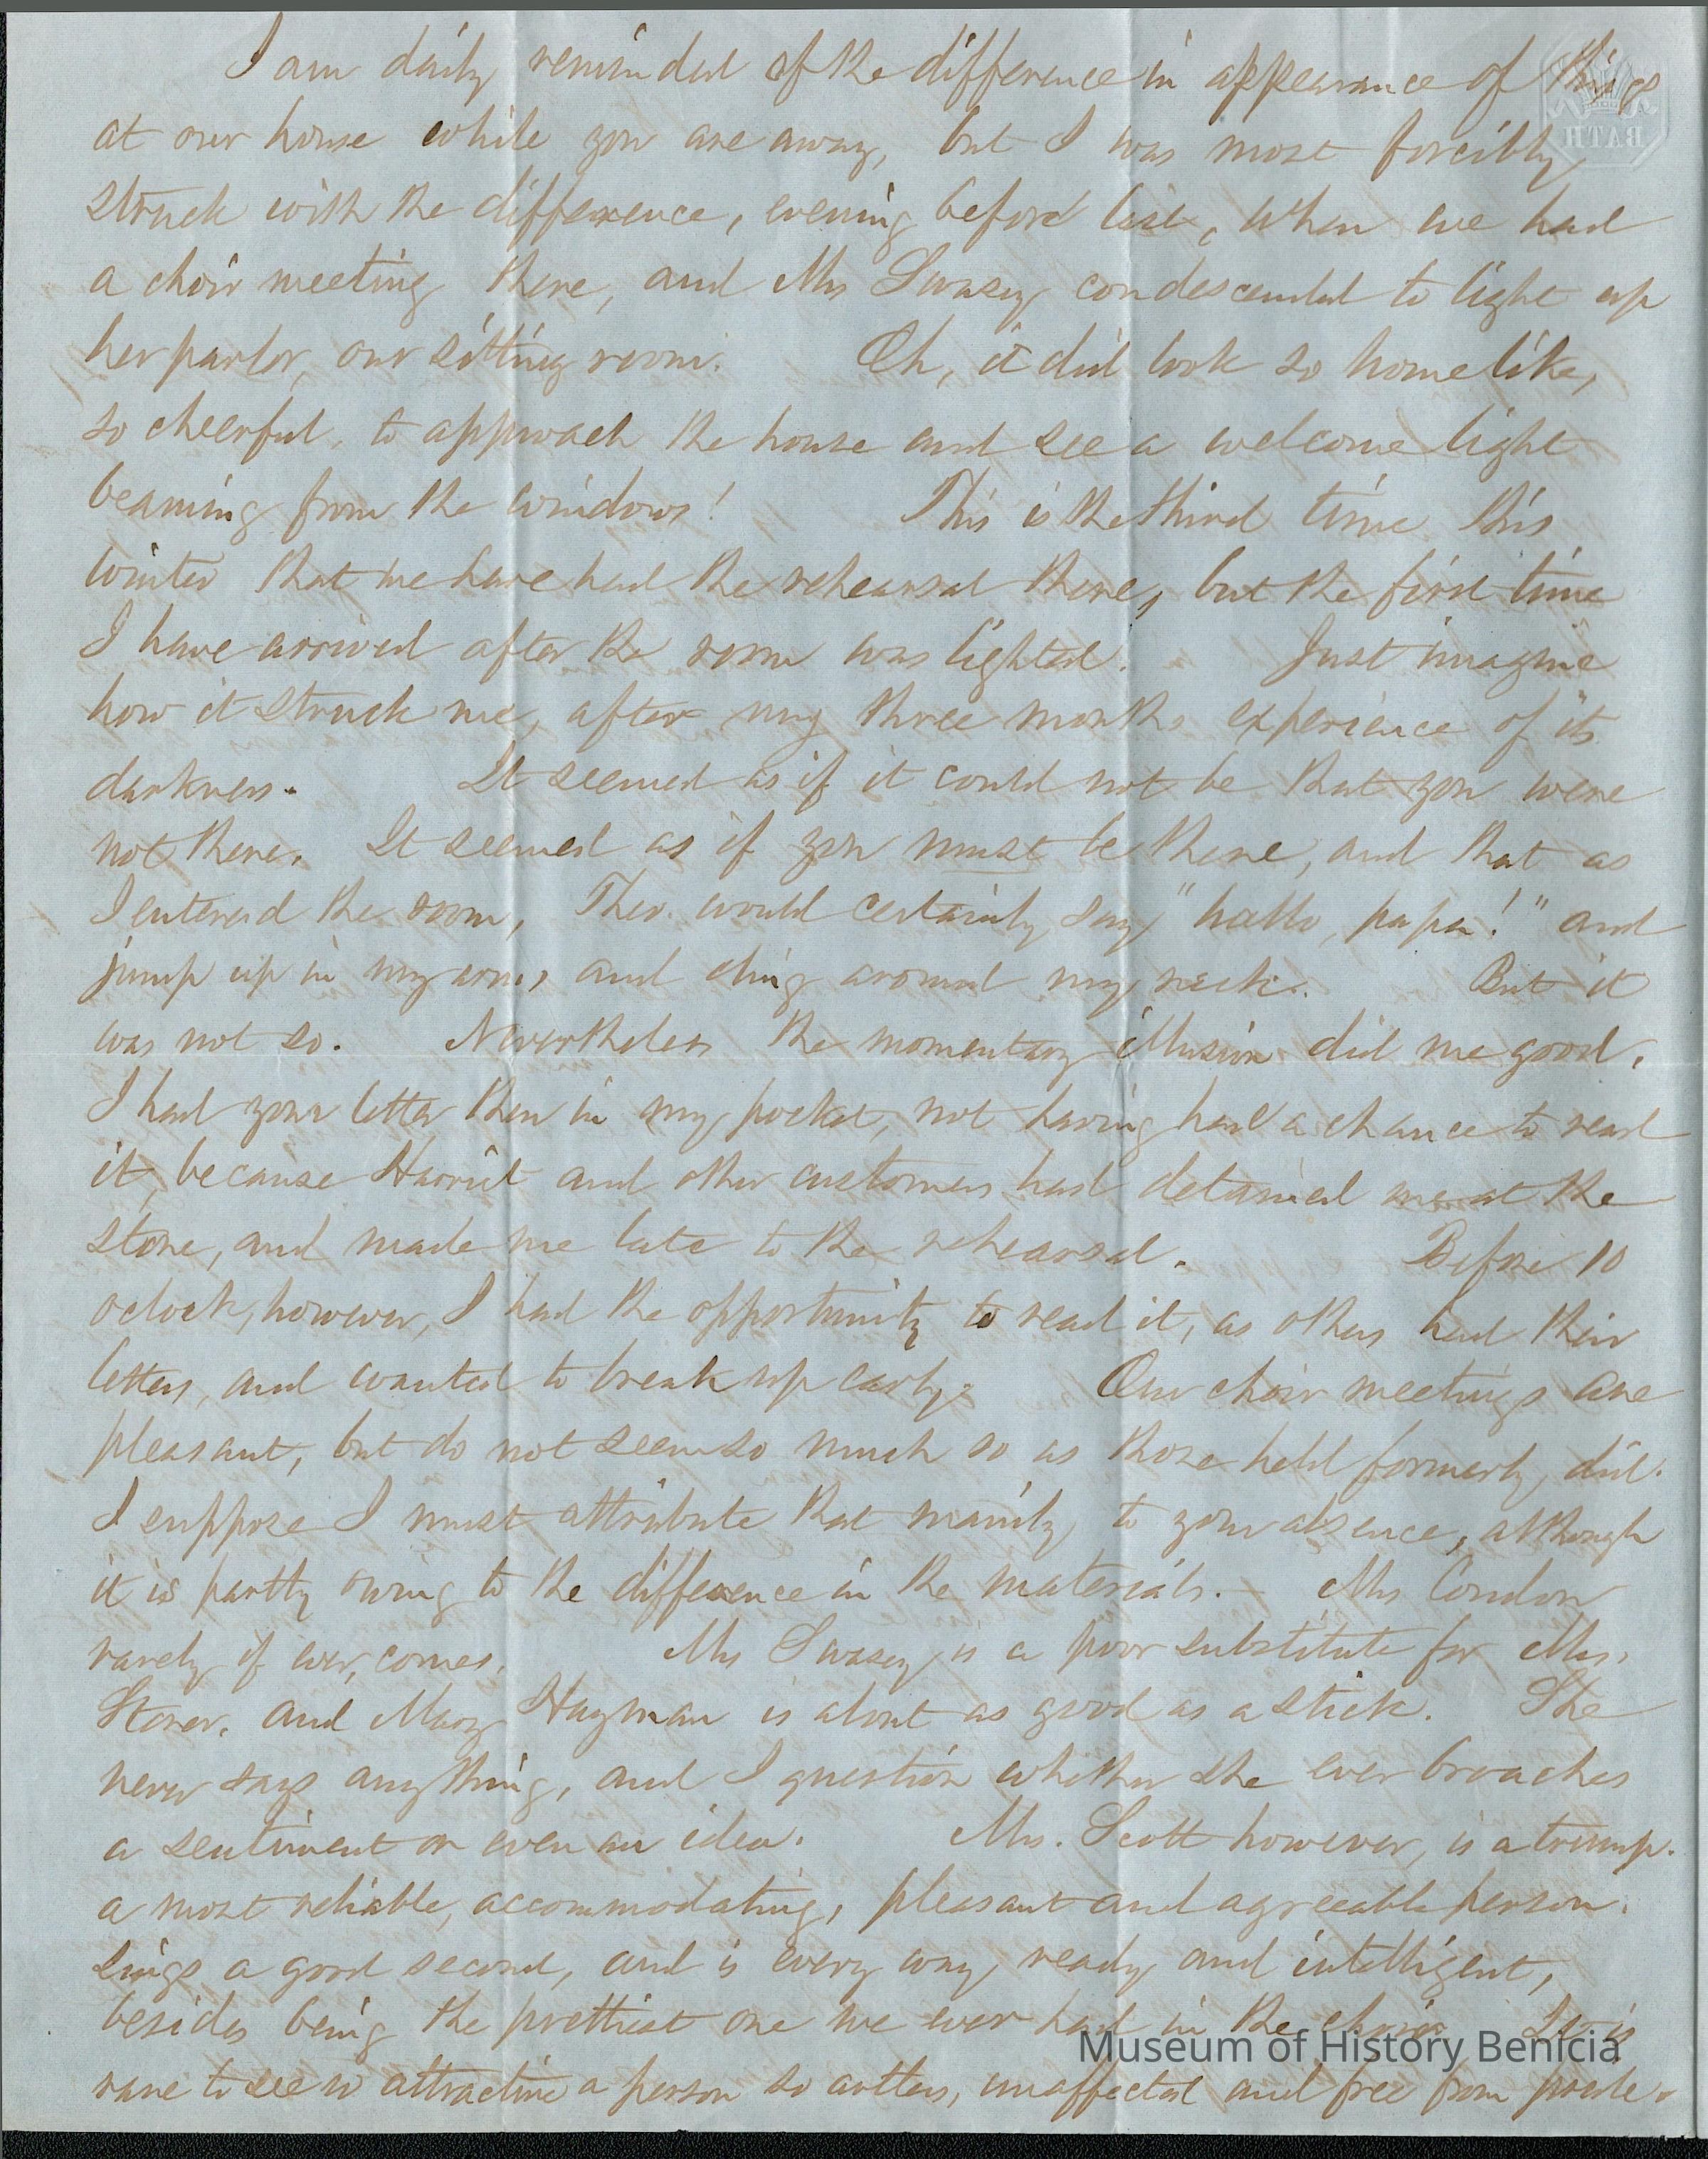 I am daily reminded of the difference in appearance of things
at our house while you are away, but I was most forcibly
struck with the difference, evening before last, when we had
a choir meeting there, and Mrs Swasey condescended to light up
her parlor, our sitting room. Oh, it did look so homelike,
so cheerful, to approach the house and see a welcome light
beaming from the windows! This is the third time this
winter that we have had the rehearsal there, but the first time
I have arrived after the room was lighted. Just imagine
how it struck me, after my three months experience of its
darkness. It seemed as if it could not be that you were
not there. It seemed as if you must be there, and that as
I entered the room, Theo. would certainly say "hallo, papa!" and
jump up in my arms and cling around my neck. But it
was not so. Nevertheless the momentary illusion did me good.
I had your letter then in my pocket, not having had a chance to read
it, because Harriet and other customers had detained me at the
store, and made me late to the rehearsal. Before 10
oclock, however, I had the opportunity to read it, as others had their
letters, and wanted to break up early. Our choir meetings are
pleasant, but do not seem so much so as those held formerly did.
I suppose I must attribute that mainly to your absence, although
it is partly owing to the difference in the materials. Mrs Condon
rarely if ever, comes. Mrs Swasey is a poor substitute for Mrs.
Stoner. and Mary Hayman is about as good as a stick. She
never says anything, and I question whether she ever broaches
a sentiment or even an idea. Mrs. Scott however, is a trump.
a most reliable, accommodating, pleasant and agreeable person.
Sings a good second, and is every way ready and intelligent,
besides being the prettiest one we ever had in the choir. It is
rare to see so attractive a person so artless, unaffected and free from pride.
BATH
Museum of History Benicia